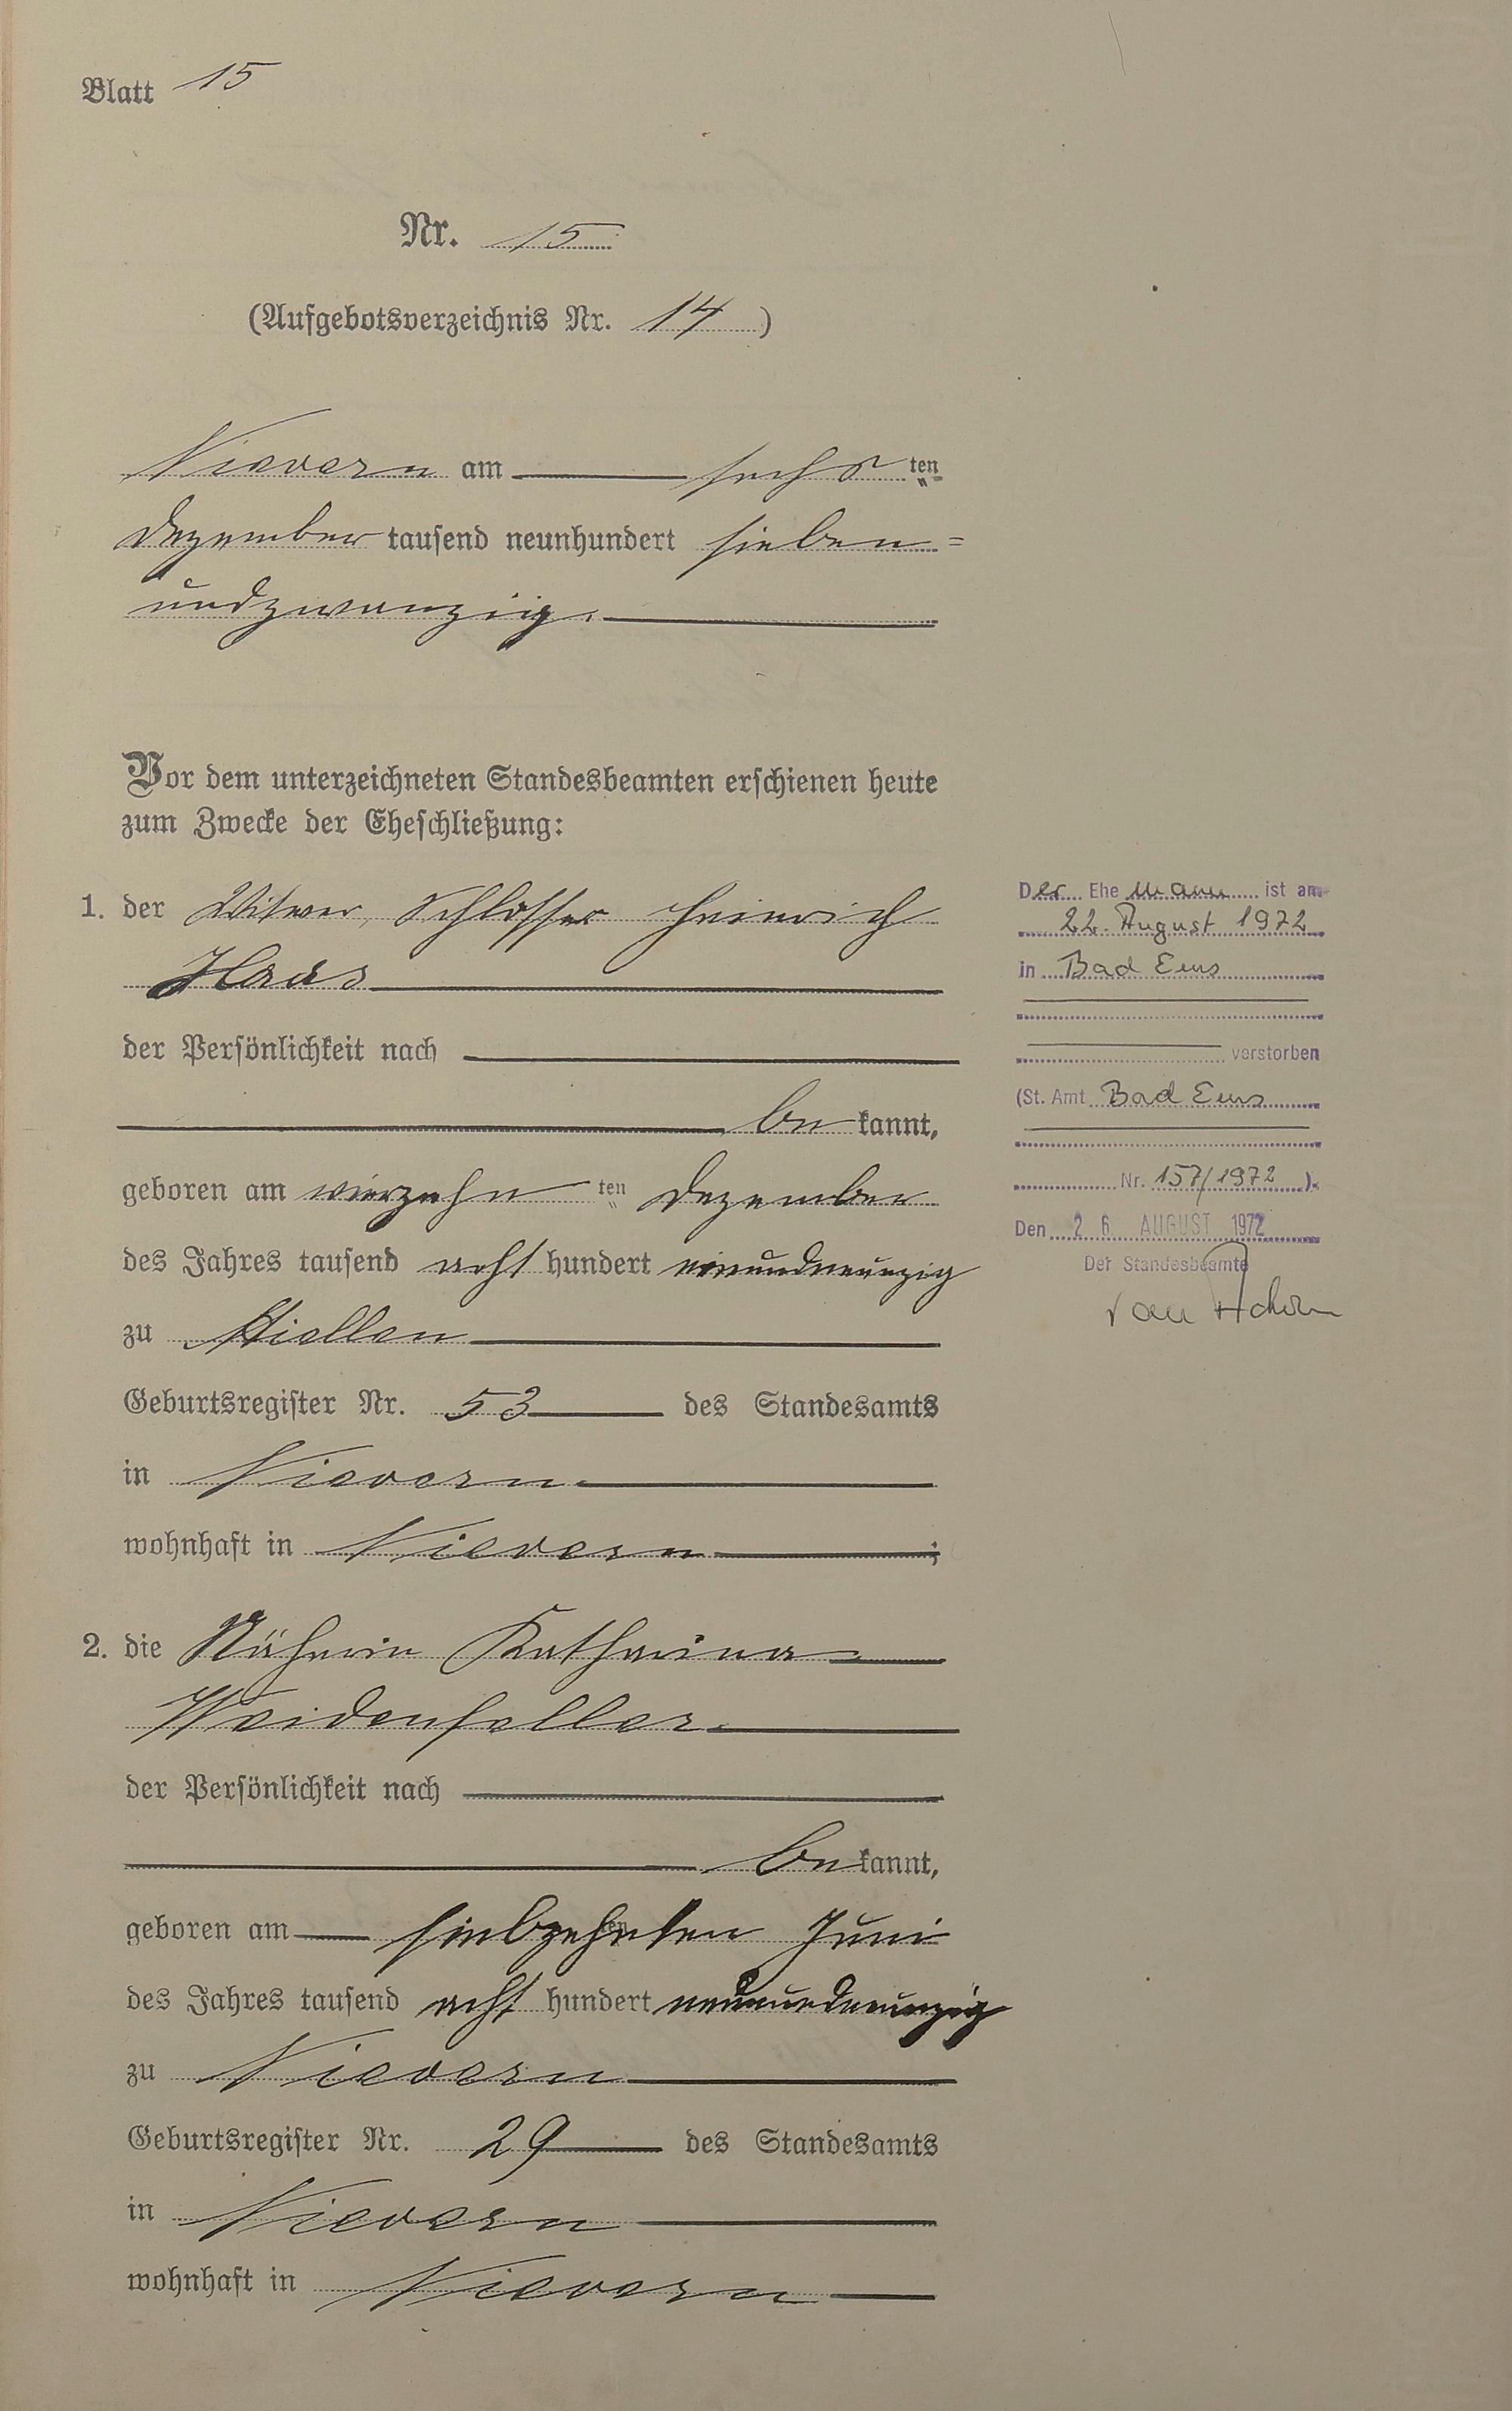 Blatt 15
Nr. 15
(Aufgebotsverzeichnis Nr. 14)
Nievern am sechsten
Dezember tausend neunhundert sieben=
undzwanzig.
Vor dem unterzeichneten Standesbeamten erschienen heute
zum Zwecke der Eheschließung:
1. der Witwer, Schlosser Heinrich
Haas
der Persönlichkeit nach
be kannt,
geboren am vierzehn ten Dezember
des Jahres tausend acht hundert einundneunzig
zu Fachbach
Geburtsregister Nr. 53 des Standesamts
in Nievern
wohnhaft in Nievern;
2. die Näherin Katharina
Weidenfeller
der Persönlichkeit nach
be kannt,
geboren am siebzehnten Juni
des Jahres tausend acht hundert neunundneunzig
zu Nievern
Geburtsregister Nr. 29 des Standesamts
in Nievern
wohnhaft in Nievern
Der Ehe mann ist am
22. August 1972
in Bad Ems
verstorben
(St. Amt Bad Ems
Nr. 157/1972 ).
Den 26. AUGUST 1972
Der Standesbeamte